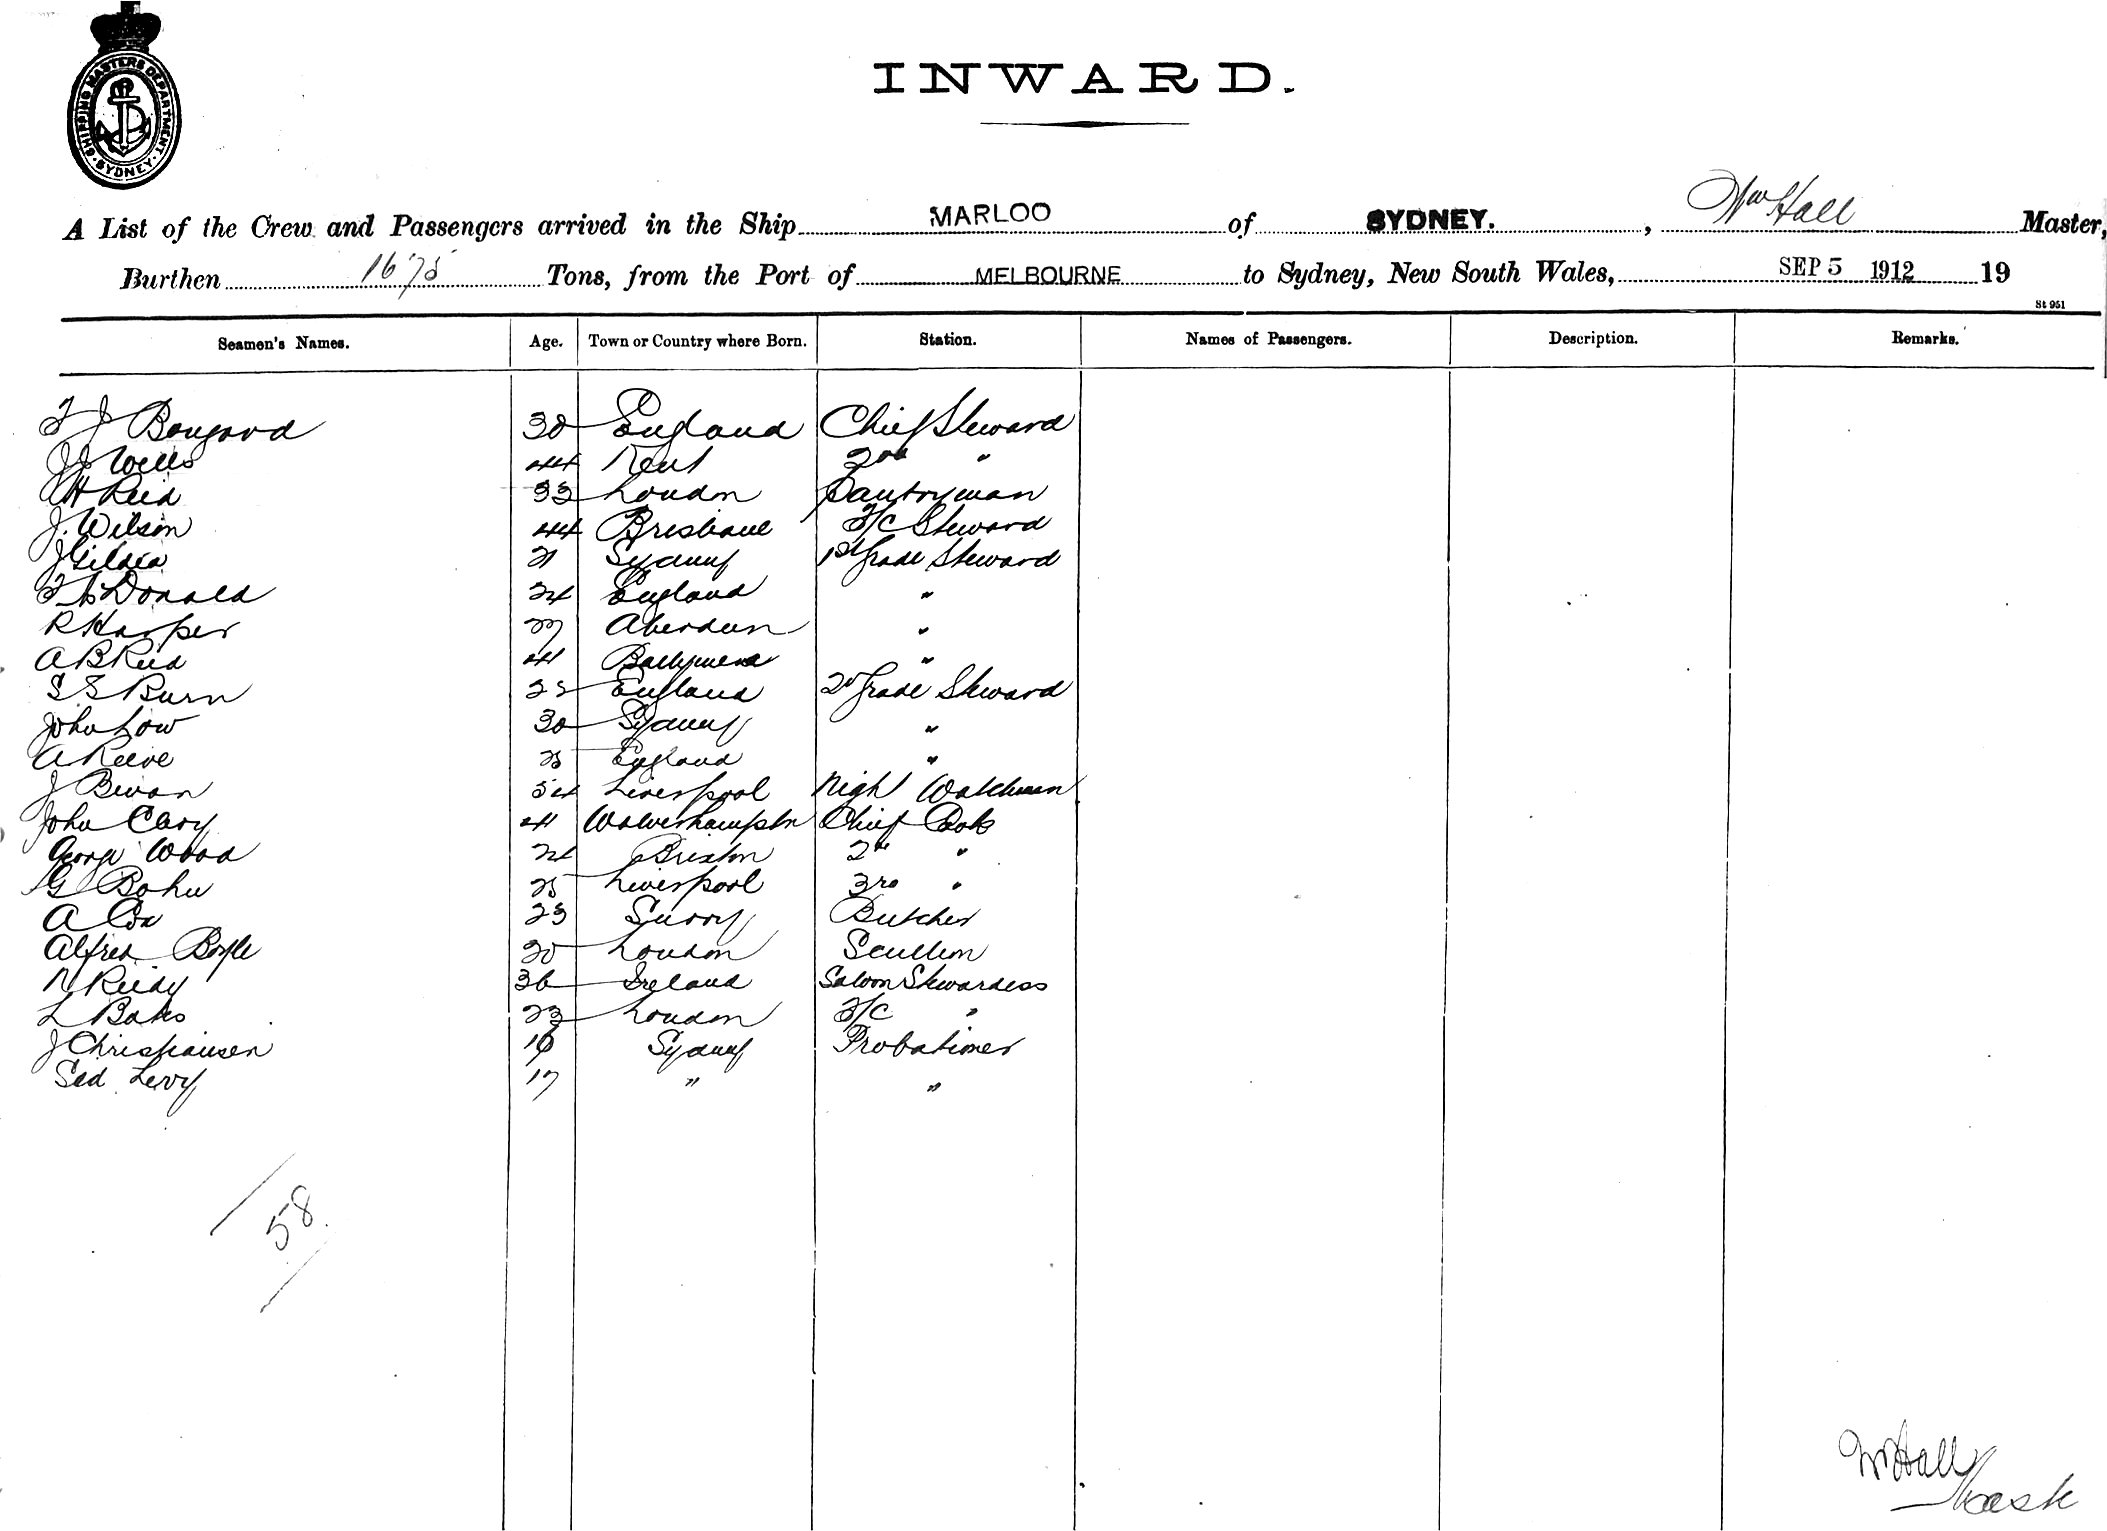 SHIPPING MASTERS DEPARTMENT
SYDNEY
INWARD.
A List of the Crew and Passengers arrived in the Ship MARLOO of SYDNEY. , Wm Hall Master,
Burthen 1675 Tons, from the Port of MELBOURNE to Sydney, New South Wales, SEP 5 1912 19
St 951
Seamen's Names. Age. Town or Country where Born. Station. Names of Passengers. Description. Remarks.
England Chief Steward
Wells 44 Kent 2nd "
Reid 33 London Pantryman
J. Wilson 44 Brisbane 3/C Steward
J Gildea 21 Sydney 1st Grade Steward
McDonald 24 England "
R Harper 27 Aberdeen "
A B Reid 41 Ballymena "
Burn England 2d Grade Steward
John Low 30 Sydney "
A Reeve 25 England "
J Bevan 54 Liverpool Night Watchman
John Cary 41 Wolverhampton Chief Cook
George Wood 24 Brixton 2nd "
G 25 Liverpool 3rd "
A Cox 23 Surry Butcher
Alfred Boyle 20 London Scullion
N Reidy 36 Ireland Saloon Stewardess
L Bates 23 London 3/C "
J Christiansen Sydney Probationer
Levy 17 " "
58
Wm Hall